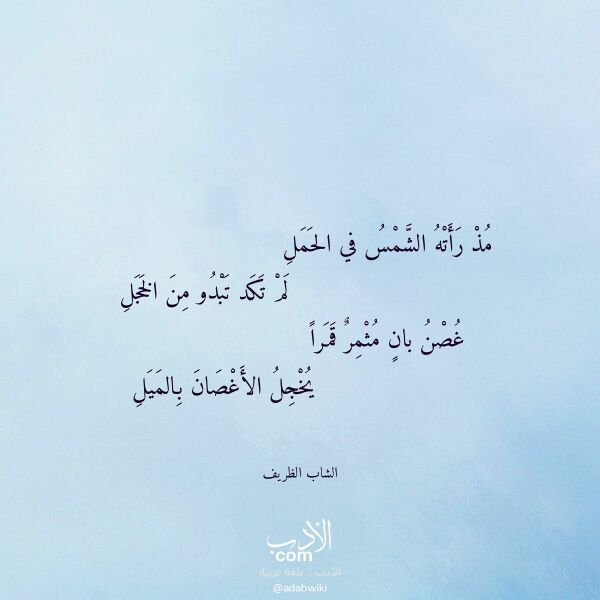 مُذْ رَأَتْهُ الشَّمْسُ في الحَمَلِ
لَمْ تَكَد تَبْدُو مِنَ الخَجَلِ
غُصْنُ بانٍ مُثْمِرٌ قَمَراً
يُخْجِلُ الأَغْصَانَ بِالمَيَلِ
الشاب الظريف
الأدب
com
الأدب .. بلغة عربية
@adabwiki